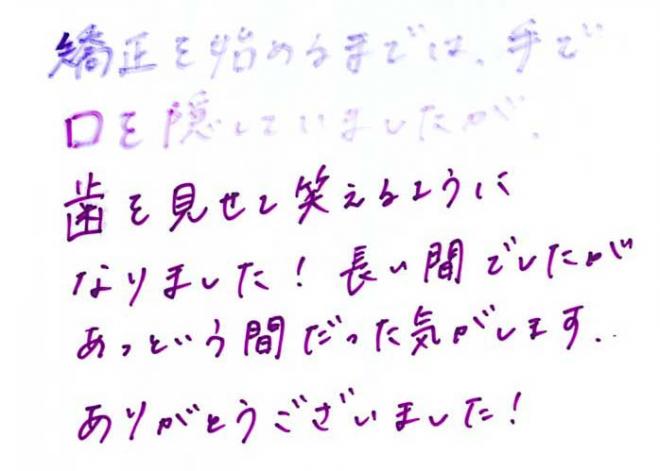 矯正を始めるまでは、手で
口を隠していましたが、
歯を見せて笑えるように
なりました！長い間でしたが
あっという間だった気がします．．
ありがとうございました！